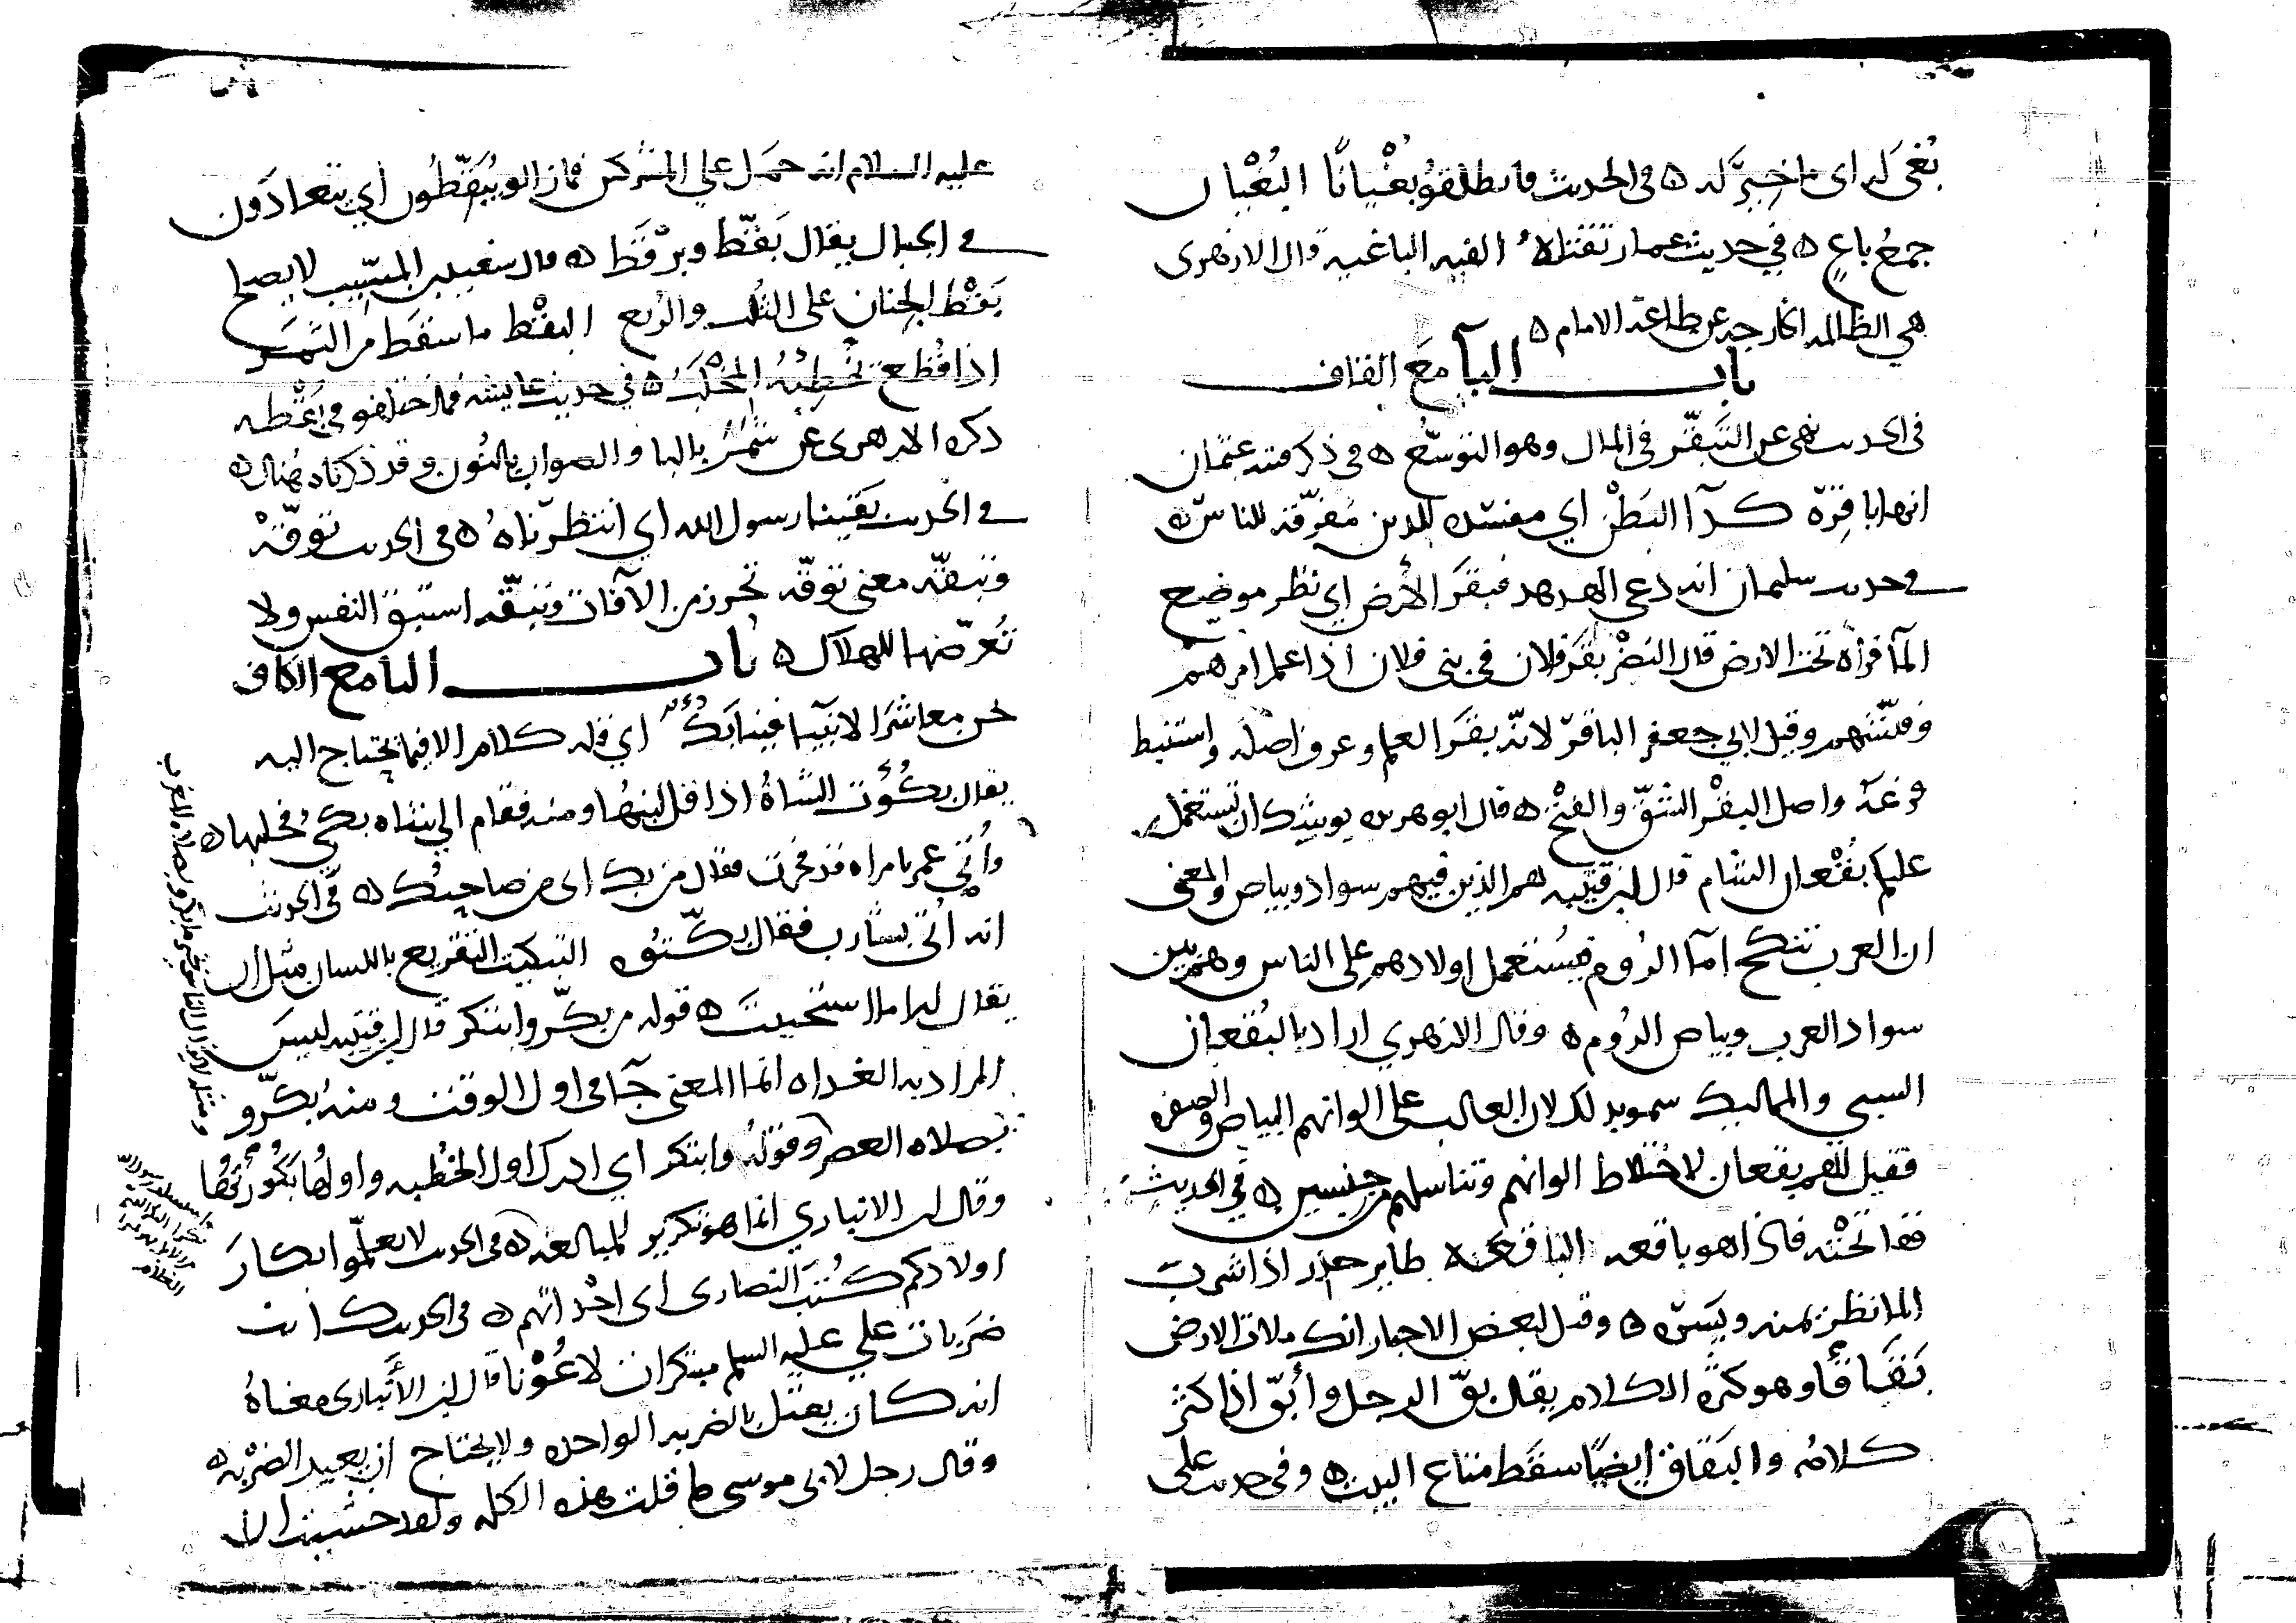 بُغي له اي ما خير له ه في الحديث فانطلقو بُغْيانًا البُغْيان
جمع باغٍ ه في حديث عمار تقتله الفيه الباغيه قال الازهرى
هي الظالمه الخارجه عن طاعه الامام ه
باب البآ مع القاف
في الحديث نهى عن التبقّر في المال وهو التوسّع ه في ذكر فتنه عثمان
انها باقرة كدآ البَطْن اي مفسده للدين مُفرّقه للناس ه
في حديث سليمان انه دعى الهدهد فبقر الأرض اي نظر موضع
المآ فرأه تحت الارض قال النضر بقر فلان في بنى فلان اذا علم امرهم
وفتّشهم وقيل لابي جعفر الباقر لانّه بقر العلم وعرف اصله واستنبط
فرعَهُ واصل البقْر الشقّ والفتح ه قال ابو هريره يوشك ان يُستعمل
عليكم بُقْعان الشام قال ابن قتيبه هم الذين فيهم سواد وبياض والمعنى
ان العرب تنكح امآ الرُوم فيُستعمل اولادهم على الناس وهم بين
سواد العرب وبياض الرُوم ه وقال الازهري اراد بالبُقعان
السبي والمماليك سموا بذلك لان الغالب على الوانهم البياض والصفره
فقيل لهم بقعان لاختلاط الوانهم وتناسلهم من جنسين ه في الحديث
ففاتحْته فاذا هو باقعه الباقعه طاير حذر اذا شرب
الما نظر يمنه ويَسره ه وقيل لبعض الاحبار انك ملات الارض
بَقَاقًا وهو كثرة الكلام يقال بقّ الرجل وأبَقّ اذا كثر
كلامُه والبَقَاق ايضًا سقَط متاع البيت ه وفي حديث على
عليه السلام انه حمل علي المشركين فما زالو يُبَقّطُون أي يتعادَون
في الجبال يقال بَقّط وبَرْقَط ه قال سعيد بن المسيّب لا يصلح
بَقْط الجنان على الثلث والرُبع البقْط ما سقَط من الثمَر
اذا قُطع يُخطِئهُ المِخْلَب ه في حديث عايشه فما اختلفو في بَقْطه
ذكره الازهرى عن شَمَر بالبا والصواب بالنُون وقد ذكرناه هُناك ه
في الحديث بَقَينا رسول الله اي انتظرناهُ ه في الحديث توقّهْ
وتبقّه معنى توقّه تحرز من الآفات وتبقّه استبق النفس ولا
تُعرّضها للهلاك ه باب البا مع الكاف
نحن معاشرَ الانبيا فينا بَكْء اي قله كلام الا فيما يحتاج اليه
يقال بكُؤَت الشاةُ اذا قل لبنها ومنه فقام الى شاه بكيء فحلبها ه
وأُتي عمر بامراه قد فجرت فقال من بك اى من صاحبك ه في الحديث
انه أُتى بشارب فقال بكّتوه التبكيت التقريع باللسان مثل ان
يقال له اما استحييتَ ه قوله من بكّر وابتكر قال ابن قتيبه ليسَ
المراد به الغداه انما المعنى جآ في اول الوقت ومنه بكّرو
بصلاه العصر وقوله وابتكر اي ادرك اول الخطبه واولها بَكُورتها
وقال ابن الانباري انما هو تكرير للمبالغه ه في الحديث لا تعلّموا ابكارَ
اولادكم كُتبَ النصارى اى احْداثهم ه في الحديث كانت
ضَربات علي عليه السلم مبتكرات لا عُوْنا قال ابن الأنبارى معناهُ
انه كان يقتل بالضربه الواحده ولا يحتاج ان يعيد الضرْبه ه
وقال رجل لابي موسى ما قلت هذه الكلمه ولقد خشيت ان
ومثله لا يزال الناس بخير ما بكرو بصلاه المغرب